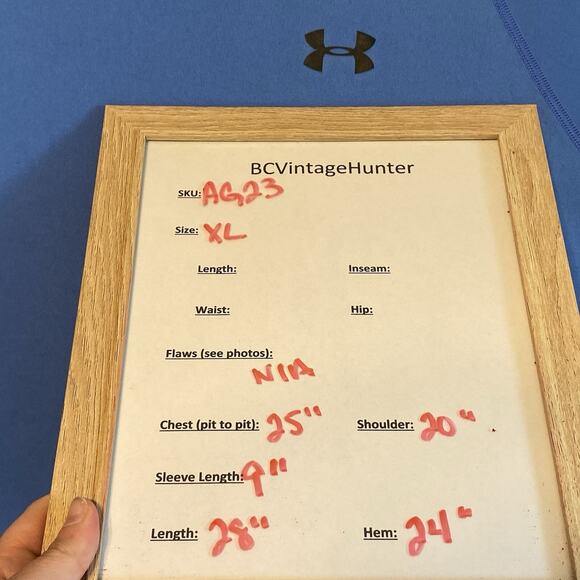 BCVintageHunter
SKU: AG23
Size: XL
Length: Inseam:
Waist: Hip:
Flaws (see photos):
N/A
Chest (pit to pit): 25" Shoulder: 20"
Sleeve Length: 9"
Length: 28" Hem: 24"